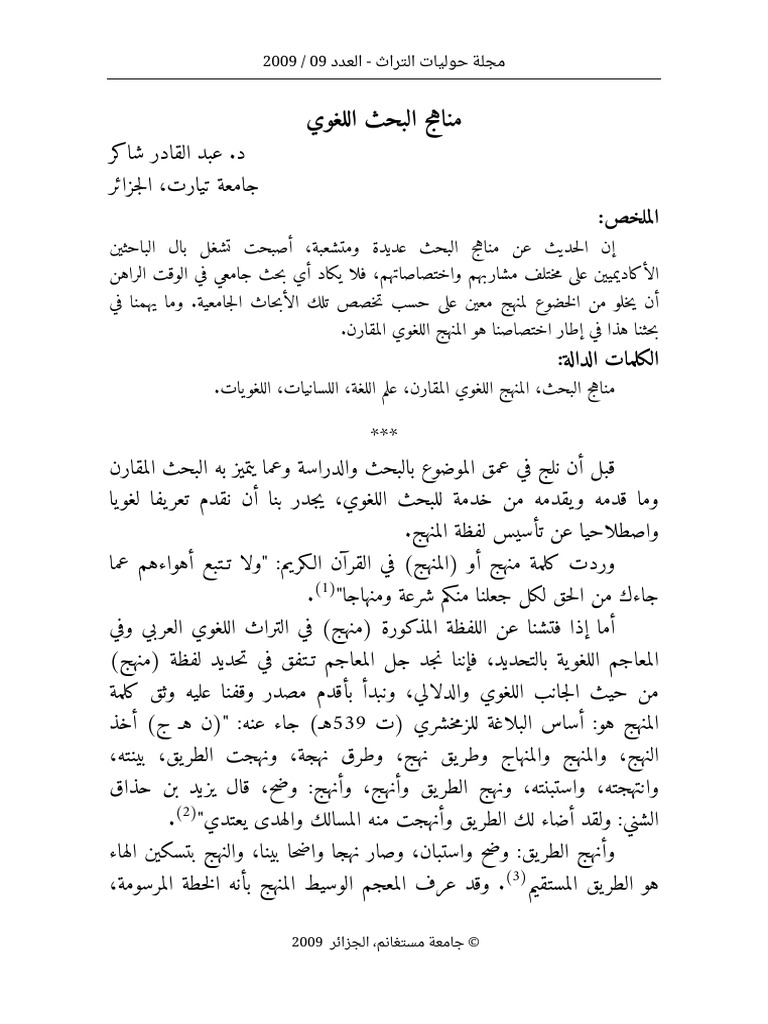 مجلة حوليات التراث - العدد 09 / 2009
مناهج البحث اللغوي
د. عبد القادر شاكر
جامعة تيارت، الجزائر
الملخص:
إن الحديث عن مناهج البحث عديدة ومتشعبة، أصبحت تشغل بال الباحثين
الأكاديميين على مختلف مشاربهم واختصاصاتهم، فلا يكاد أي بحث جامعي في الوقت الراهن
أن يخلو من الخضوع لمنهج معين على حسب تخصص تلك الأبحاث الجامعية. وما يهمنا في
بحثنا هذا في إطار اختصاصنا هو المنهج اللغوي المقارن.
الكلمات الدالة:
مناهج البحث، المنهج اللغوي المقارن، علم اللغة، اللسانيات، اللغويات.
***
قبل أن نلج في عمق الموضوع بالبحث والدراسة وعما يتميز به البحث المقارن
وما قدمه ويقدمه من خدمة للبحث اللغوي، يجدر بنا أن نقدم تعريفا لغويا
واصطلاحيا عن تأسيس لفظة المنهج.
وردت كلمة منهج أو (المنهج) في القرآن الكريم: "ولا تتبع أهواءهم عما
جاءك من الحق لكل جعلنا منكم شرعة ومنهاجا"(1).
أما إذا فتشنا عن اللفظة المذكورة (منهج) في التراث اللغوي العربي وفي
المعاجم اللغوية بالتحديد، فإننا نجد جل المعاجم تتفق في تحديد لفظة (منهج)
من حيث الجانب اللغوي والدلالي، ونبدأ بأقدم مصدر وقفنا عليه وثق كلمة
المنهج هو: أساس البلاغة للزمخشري (ت 539هـ) جاء عنه: "(ن هـ ج) أخذ
النهج، والمنهج والمنهاج وطريق نهج، وطرق نهجة، ونهجت الطريق، بينته،
وانتهجته، واستبنته، ونهج الطريق وأنهج، وأنهج: وضح، قال يزيد بن حذاق
الشني: ولقد أضاء لك الطريق وأنهجت منه المسالك والهدى يعتدي"(2).
وأنهج الطريق: وضح واستبان، وصار نهجا واضحا بينا، والنهج بتسكين الهاء
هو الطريق المستقيم(3). وقد عرف المعجم الوسيط المنهج بأنه الخطة المرسومة،
© جامعة مستغانم، الجزائر 2009